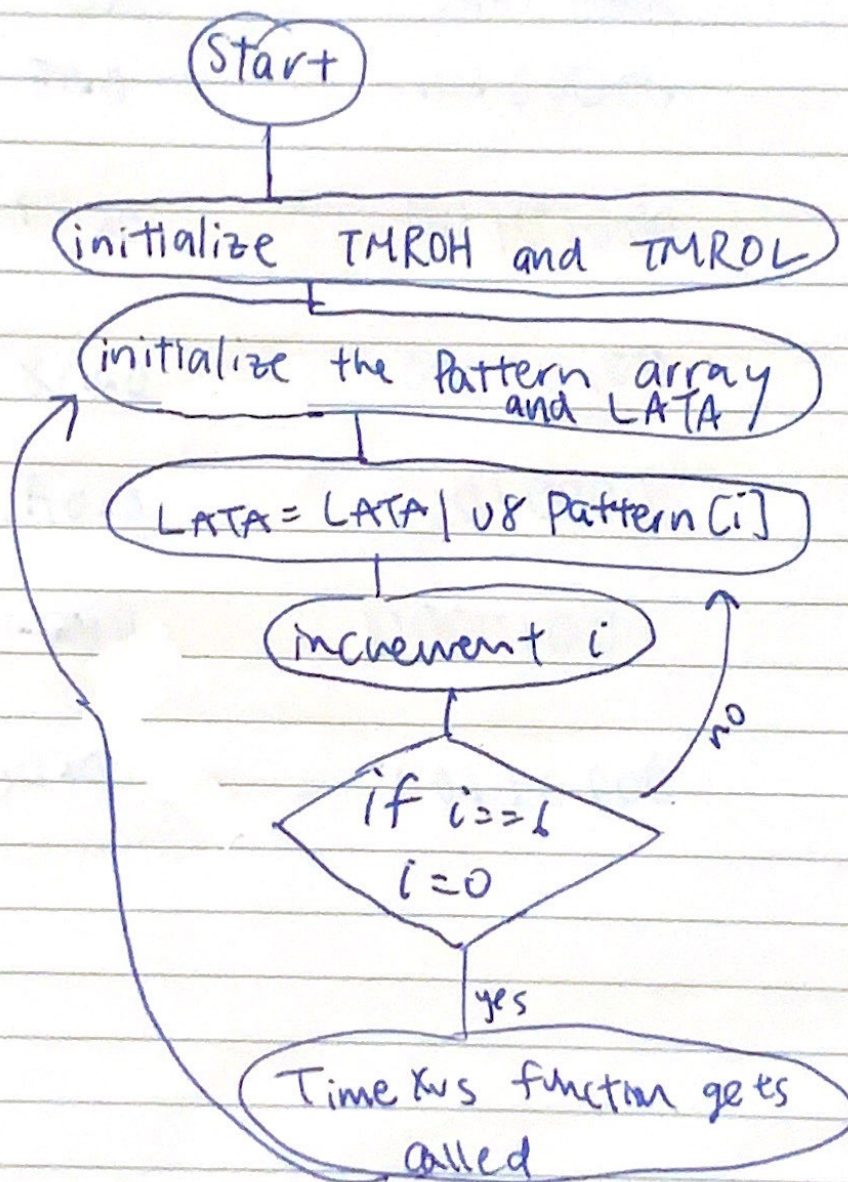 Start
initialize TMR0H and TMR0L
initialize the Pattern array
and LATA
LATA = LATA | u8 Pattern [i]
increment i
no
if i==6
i=0
yes
Time Xus function gets
called